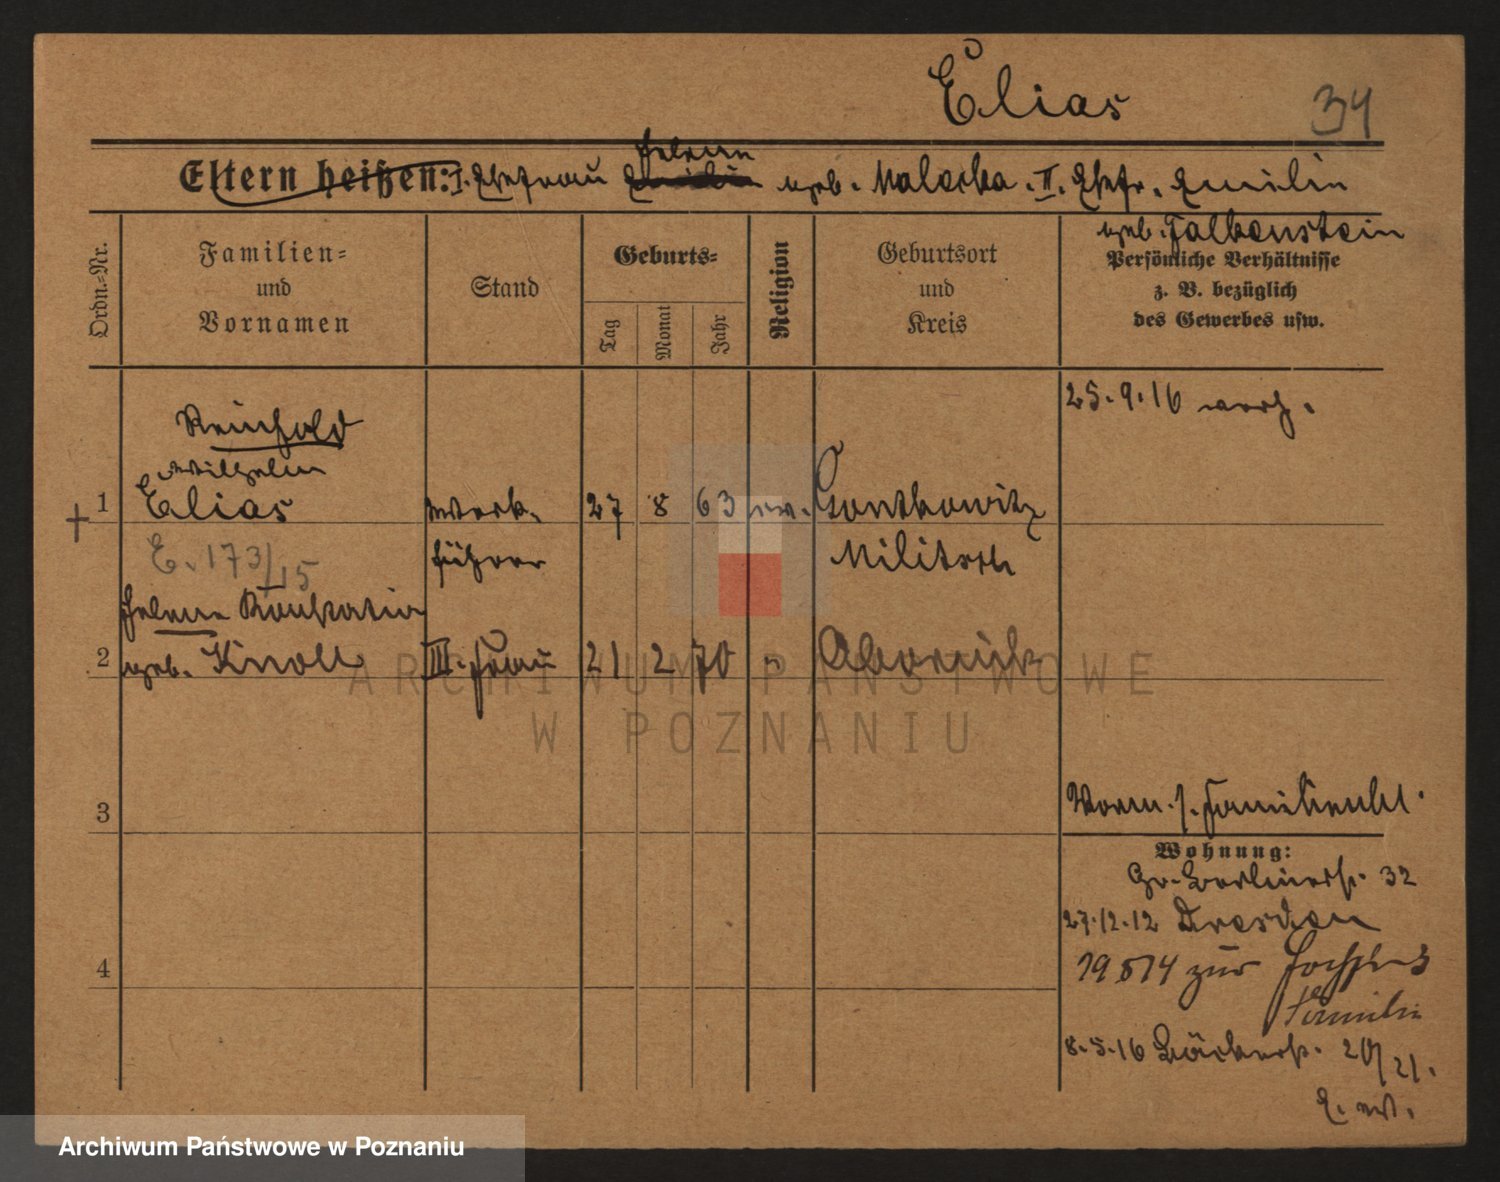 Elias
34
Eltern heißen: I. Ehefrau Helene geb. Malecka. II. Ehefr. Emilie
geb. Falkenstein
Ordn.-Nr.
Familien-
und
Vornamen
Stand
Geburts-
Tag
Monat
Jahr
Religion
Geburtsort
und
Kreis
Persönliche Verhältnisse
z. B. bezüglich
des Gewerbes usw.
25.9.16 verh.
Reinhold
Wilhelm
1 Elias Werk- 27 8 63 ev. Gontkowitz
führer Militsch
E. 173/15
Helene
2 geb. Knoll III. Frau 21 2 70 "
ARCHIWUM PAŃSTWOWE
W POZNANIU
3
Vorm. s. Familienbl.
Wohnung:
Gr. Berlinerstr. 32
27.12.12 Dresden
4
19 5 14 zur
Familie
8.5.16 Bäckerstr. 20/21.
E. W.
Archiwum Państwowe w Poznaniu